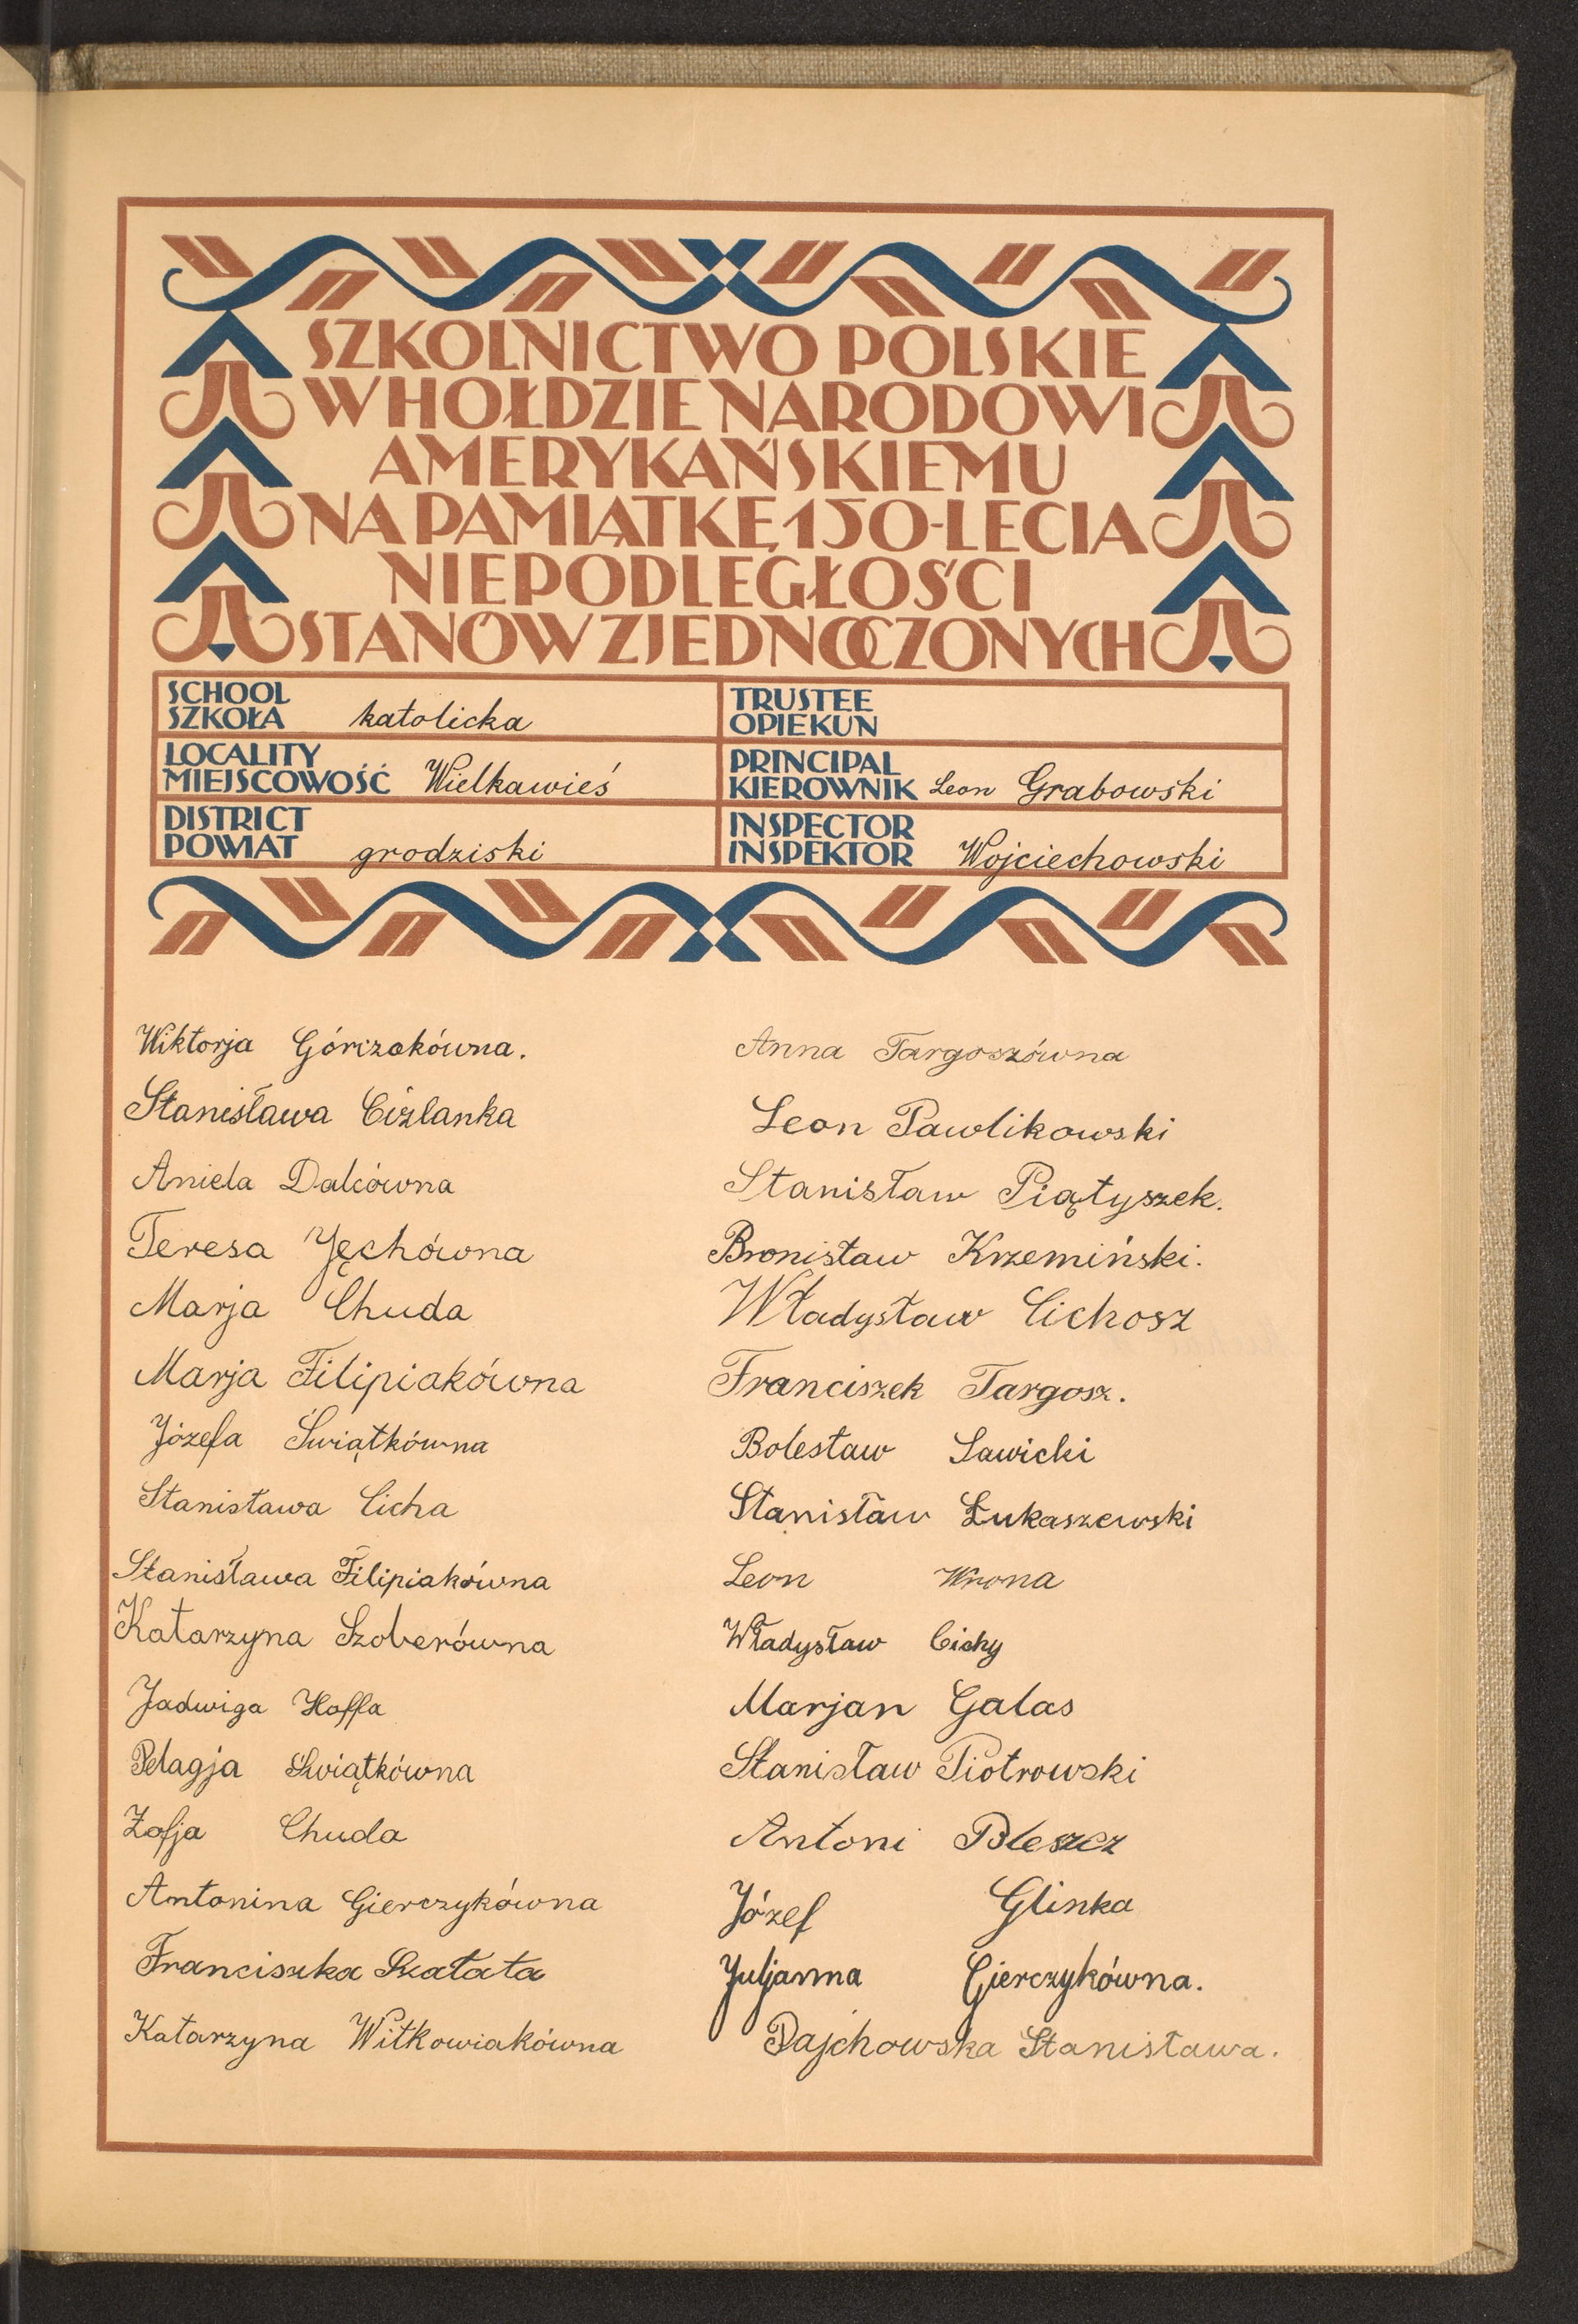 SZKOLNICTWO POLSKIE
W HOŁDZIE NARODOWI
AMERYKAŃSKIEMU
NA PAMIĄTKĘ 150-LECIA
NIEPODLEGŁOŚCI
STANÓW ZJEDNOCZONYCH
SCHOOL
SZKOŁA katolicka
LOCALITY
MIEJSCOWOŚĆ Wielkawieś
DISTRICT
POWIAT grodziski
TRUSTEE
OPIEKUN
PRINCIPAL
KIEROWNIK Leon Grabowski
INSPECTOR
INSPEKTOR Wojciechowski
Wiktorja Górczakówna.
Stanisława Ciżlanka
Aniela Dalcówna
Teresa Jęchówna
Marja Chuda
Marja Filipiakówna
Józefa Świątkówna
Stanisława Cicha
Stanisława Filipiakówna
Katarzyna Szoberówna
Jadwiga Hoffa
Pelagja Świątkówna
Zofja Chuda
Antonina Gierczykówna
Franciszka Szałata
Katarzyna Witkowiakówna
Anna Targoszówna
Leon Pawlikowski
Stanisław Piątyszek.
Bronisław Krzemiński.
Władysław Cichosz
Franciszek Targosz.
Bolesław Sawicki
Stanisław Łukaszewski
Leon Wrona
Władysław Cichy
Marjan Galas
Stanisław Piotrowski
Antoni Bleszcz
Józef Glinka
Juljanna Gierczykówna.
Pajchowska Stanisława.